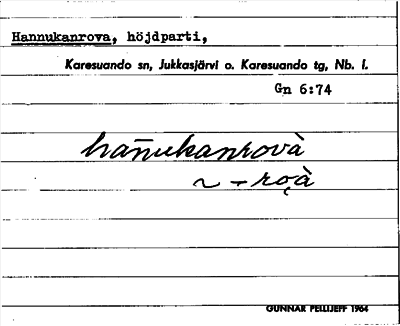 Hannukanrova, höjdparti,
Karesuando sn, Jukkasjärvi o. Karesuando tg, Nb. l.
Gn 6:74
han̄ukanrovà
~ - ro̜à
GUNNAR PELLIJEFF 1964